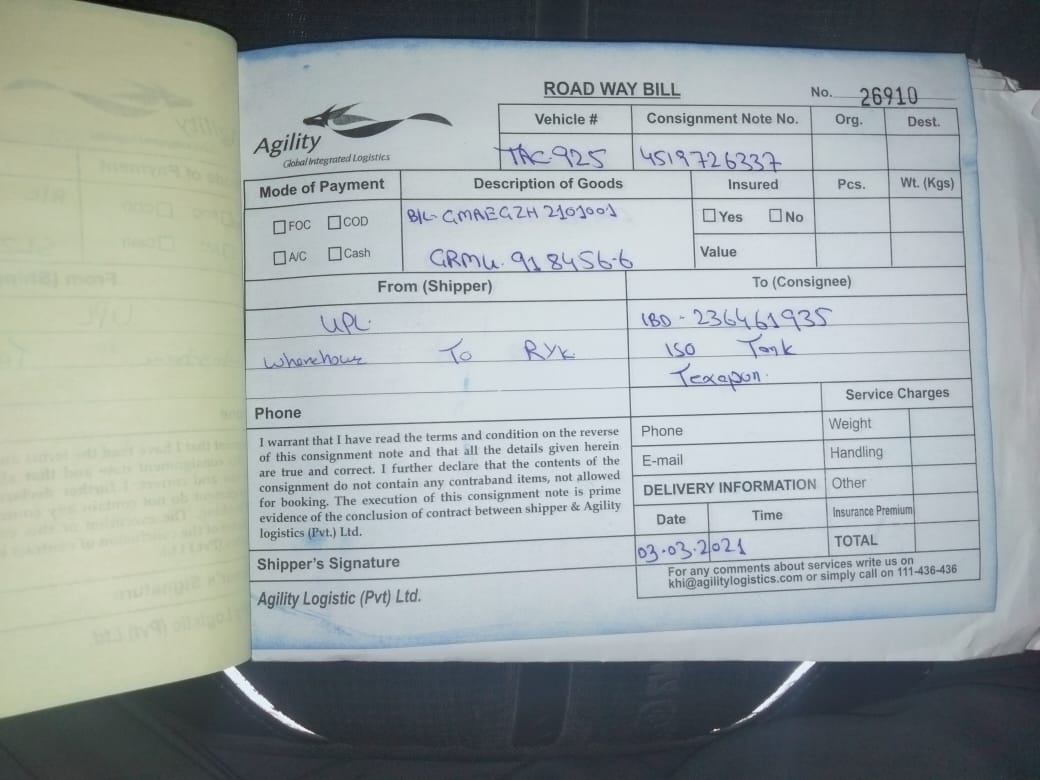 ROAD WAY BILL
No. 26910
Agility
Global Integrated Logistics
Vehicle #
Consignment Note No.
Org.
Dest.
TAC-925
4519726337
Mode of Payment
Description of Goods
Insured
Pcs.
Wt. (Kgs)
FOC
COD
B/L- GMAEGZH 2101001
Yes
No
A/C
Cash
GRMU. 918456-6
Value
From (Shipper)
To (Consignee)
UPL.
IBD - 236461935
Wherehouse To RYK
ISO Tank
Texapon.
Service Charges
Phone
Phone
Weight
I warrant that I have read the terms and condition on the reverse
of this consignment note and that all the details given herein
are true and correct. I further declare that the contents of the
consignment do not contain any contraband items, not allowed
for booking. The execution of this consignment note is prime
evidence of the conclusion of contract between shipper & Agility
logistics (Pvt.) Ltd.
E-mail
Handling
DELIVERY INFORMATION
Other
Date
Time
Insurance Premium
03.03.2021
TOTAL
Shipper's Signature
For any comments about services write us on
khi@agilitylogistics.com or simply call on 111-436-436
Agility Logistic (Pvt) Ltd.